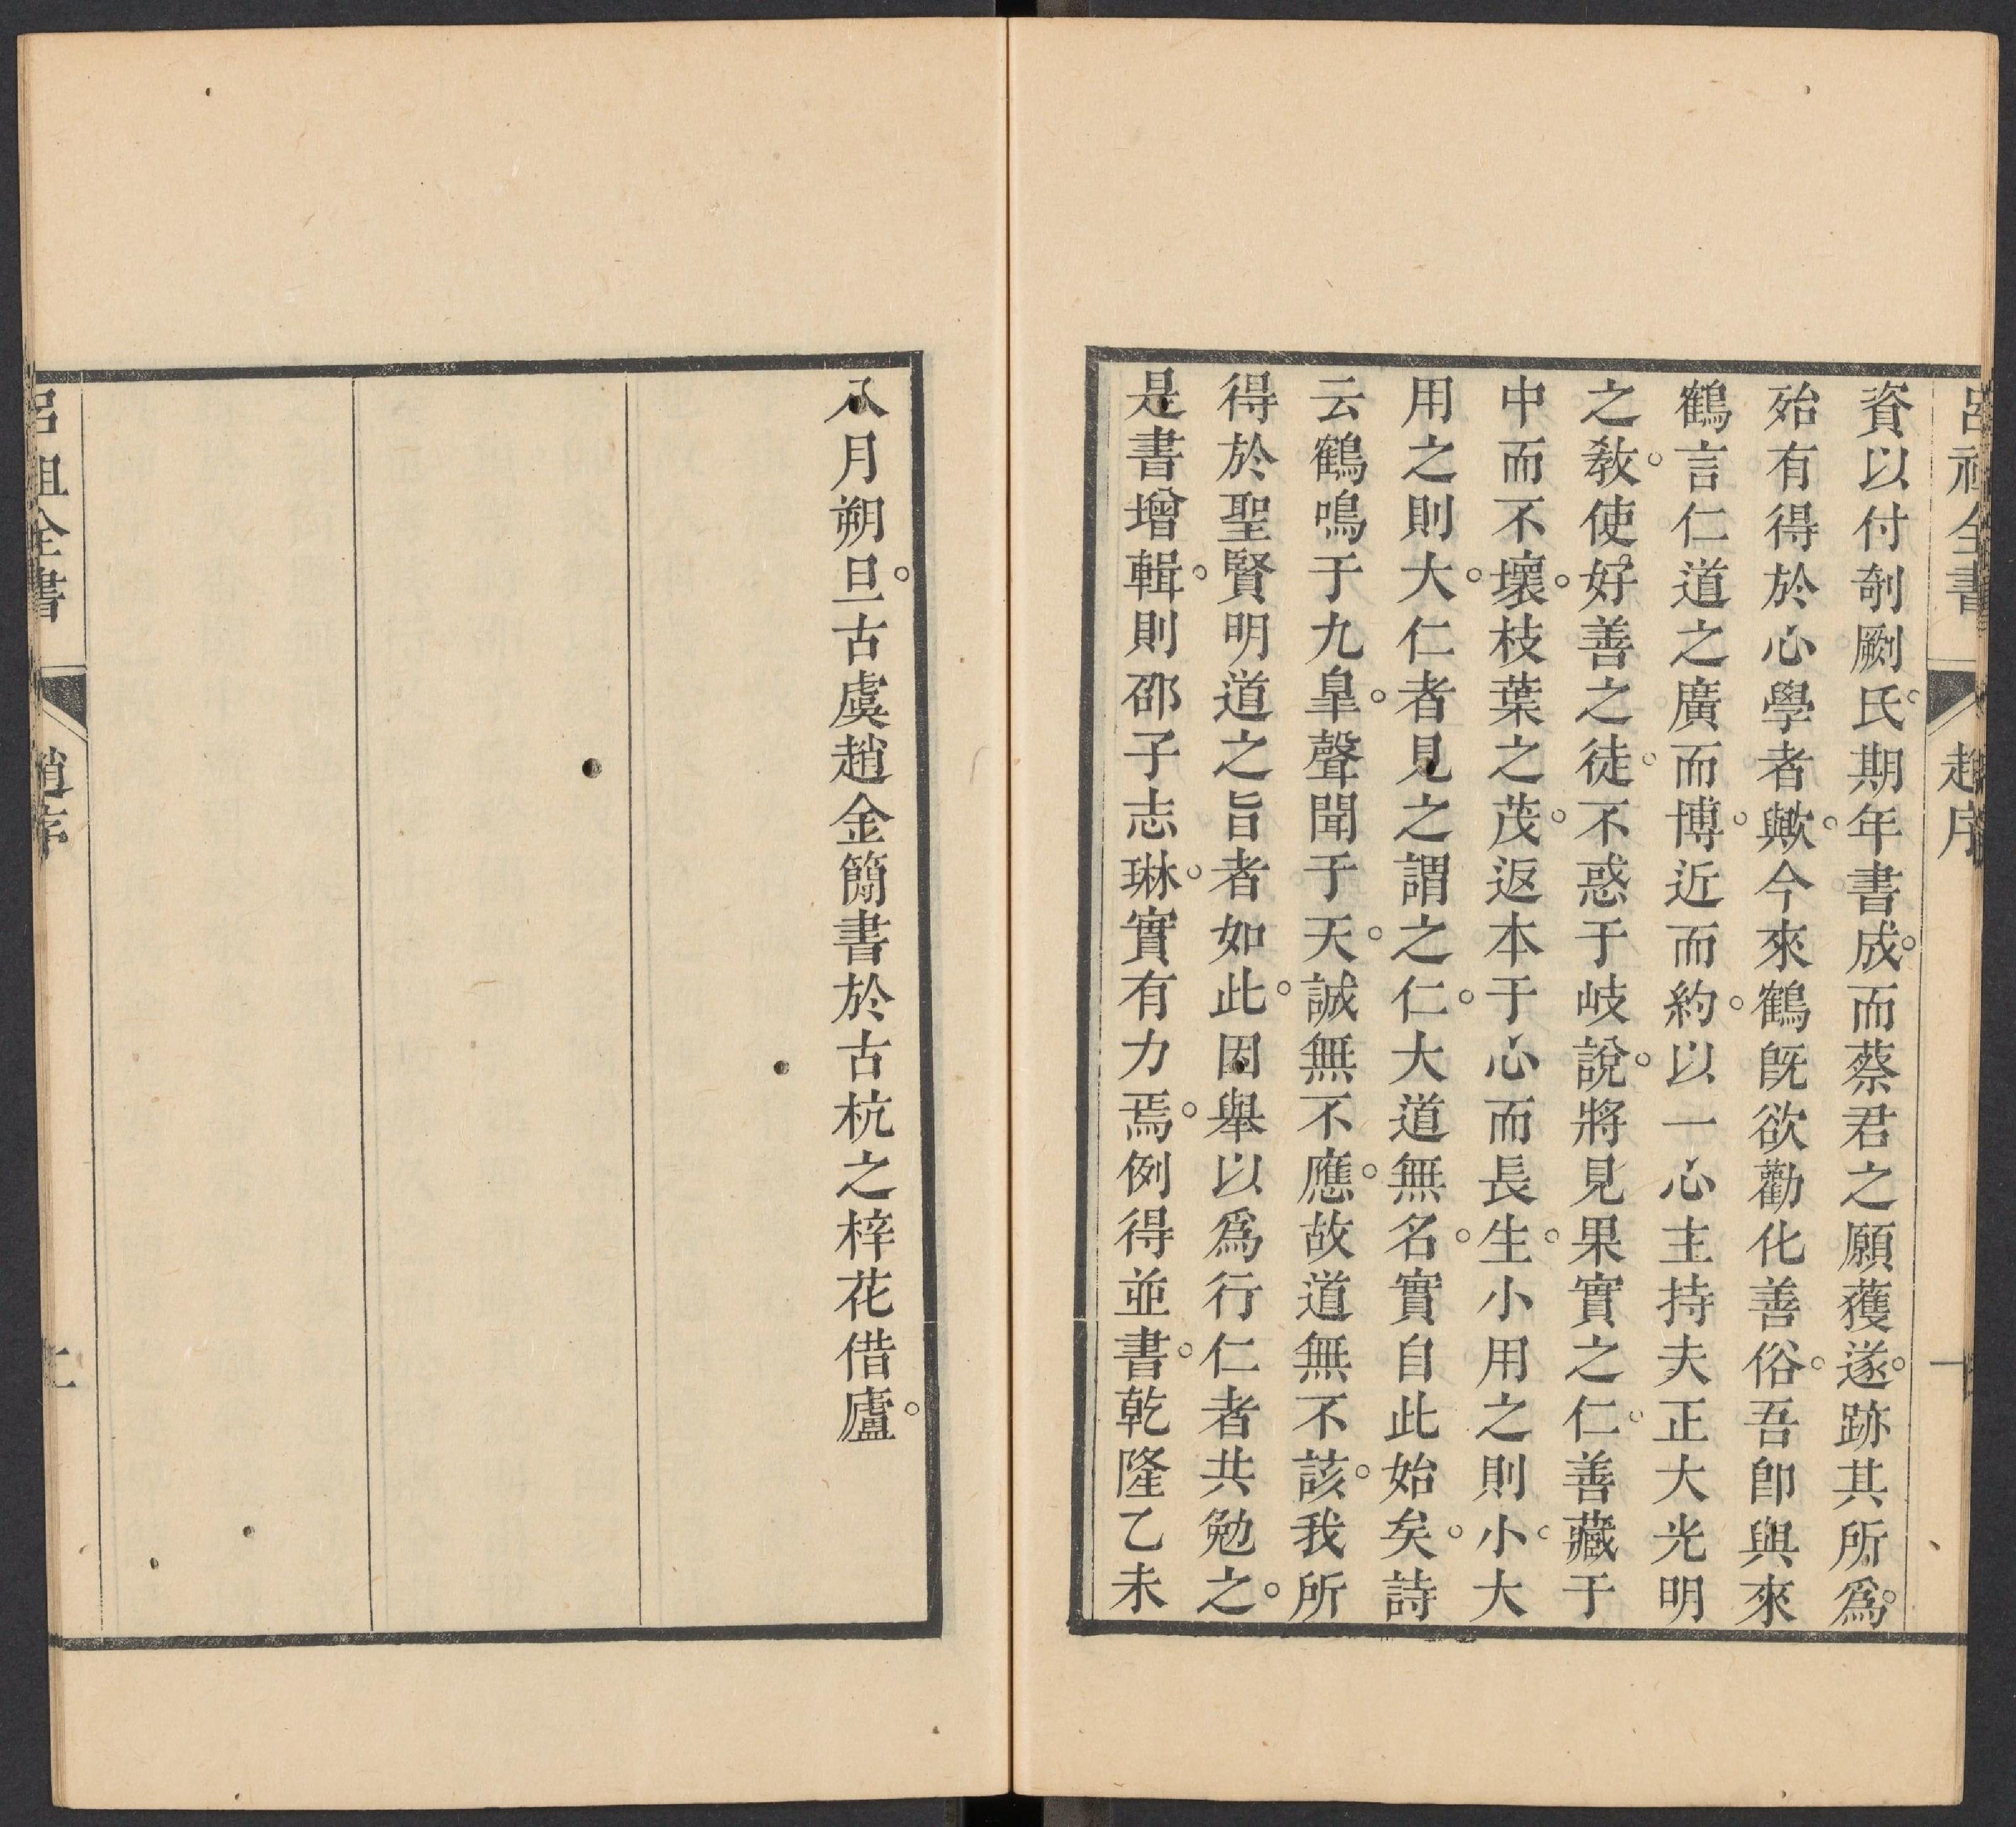 呂祖全書 趙序 一
資以付剞劂氏。期年書成。而蔡君之願獲遂。跡其所爲。
殆有得於心學者歟。今來鶴既欲勸化善俗。吾卽與來
鶴言仁道之廣而博。近而約。以一心主持夫正大光明
之教。使好善之徒。不惑于岐說。將見果實之仁。善藏于
中而不壞。枝葉之茂。返本于心而長生。小用之則小。大
用之則大。仁者見之謂之仁。大道無名。實自此始矣。詩
云鶴鳴于九臯。聲聞于天。誠無不應。故道無不該。我所
得於聖賢明道之旨者如此。因舉以爲行仁者共勉之。
是書增輯。則邵子志琳。實有力焉。例得並書。乾隆乙未
八月朔旦。古虞趙金簡書於古杭之梓花借廬。
呂祖全書 趙序